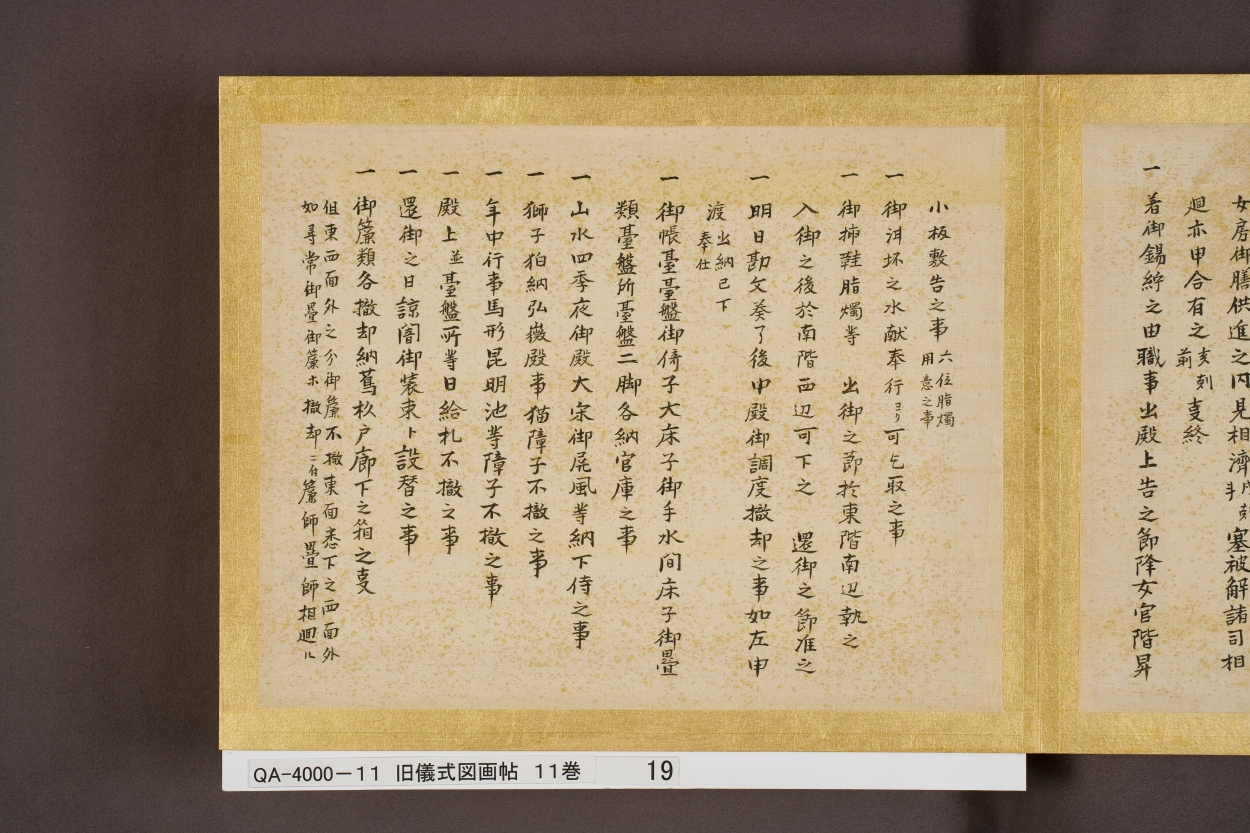 女房御膳供進之内見相濟
塞被解諸司相
廻亦申合有之 亥刻
前 亥終
一 着御錫紵之由職事出殿上告之節降女官階昇
小板敷告之事 六位脂燭
用意之事
一 御洱坏之水献奉行ヨリ可乞取之事
一 御挿鞋脂燭等 出御之節於東階南辺執之
入御之後於南階西辺可下之 還御之節准之
一 明日勘文奏了後申殿御調度撤却之事如左申
渡 出納已下
奉仕
一 御帳臺臺盤御倚子大床子御手水間床子御疊
類臺盤所臺盤二脚各納官庫之事
一 山水四季夜御殿大宋御屏風等納下侍之事
一 獅子狛納弘徽殿事猫障子不撤之事
一 年中行事馬形昆明池等障子不撤之事
一 殿上並臺盤所等日給札不撤之事
一 還御之日諒闇御装束ト設替之事
一 御簾類各撤却納蔦杦戸廊下之箱之事
但東西面外之分御簾不撤東面悉下之西面外
如尋常御疊御簾ホ撤却ニ付簾師疊師相廻ル
QA-4000-11 旧儀式図画帖 11巻 19